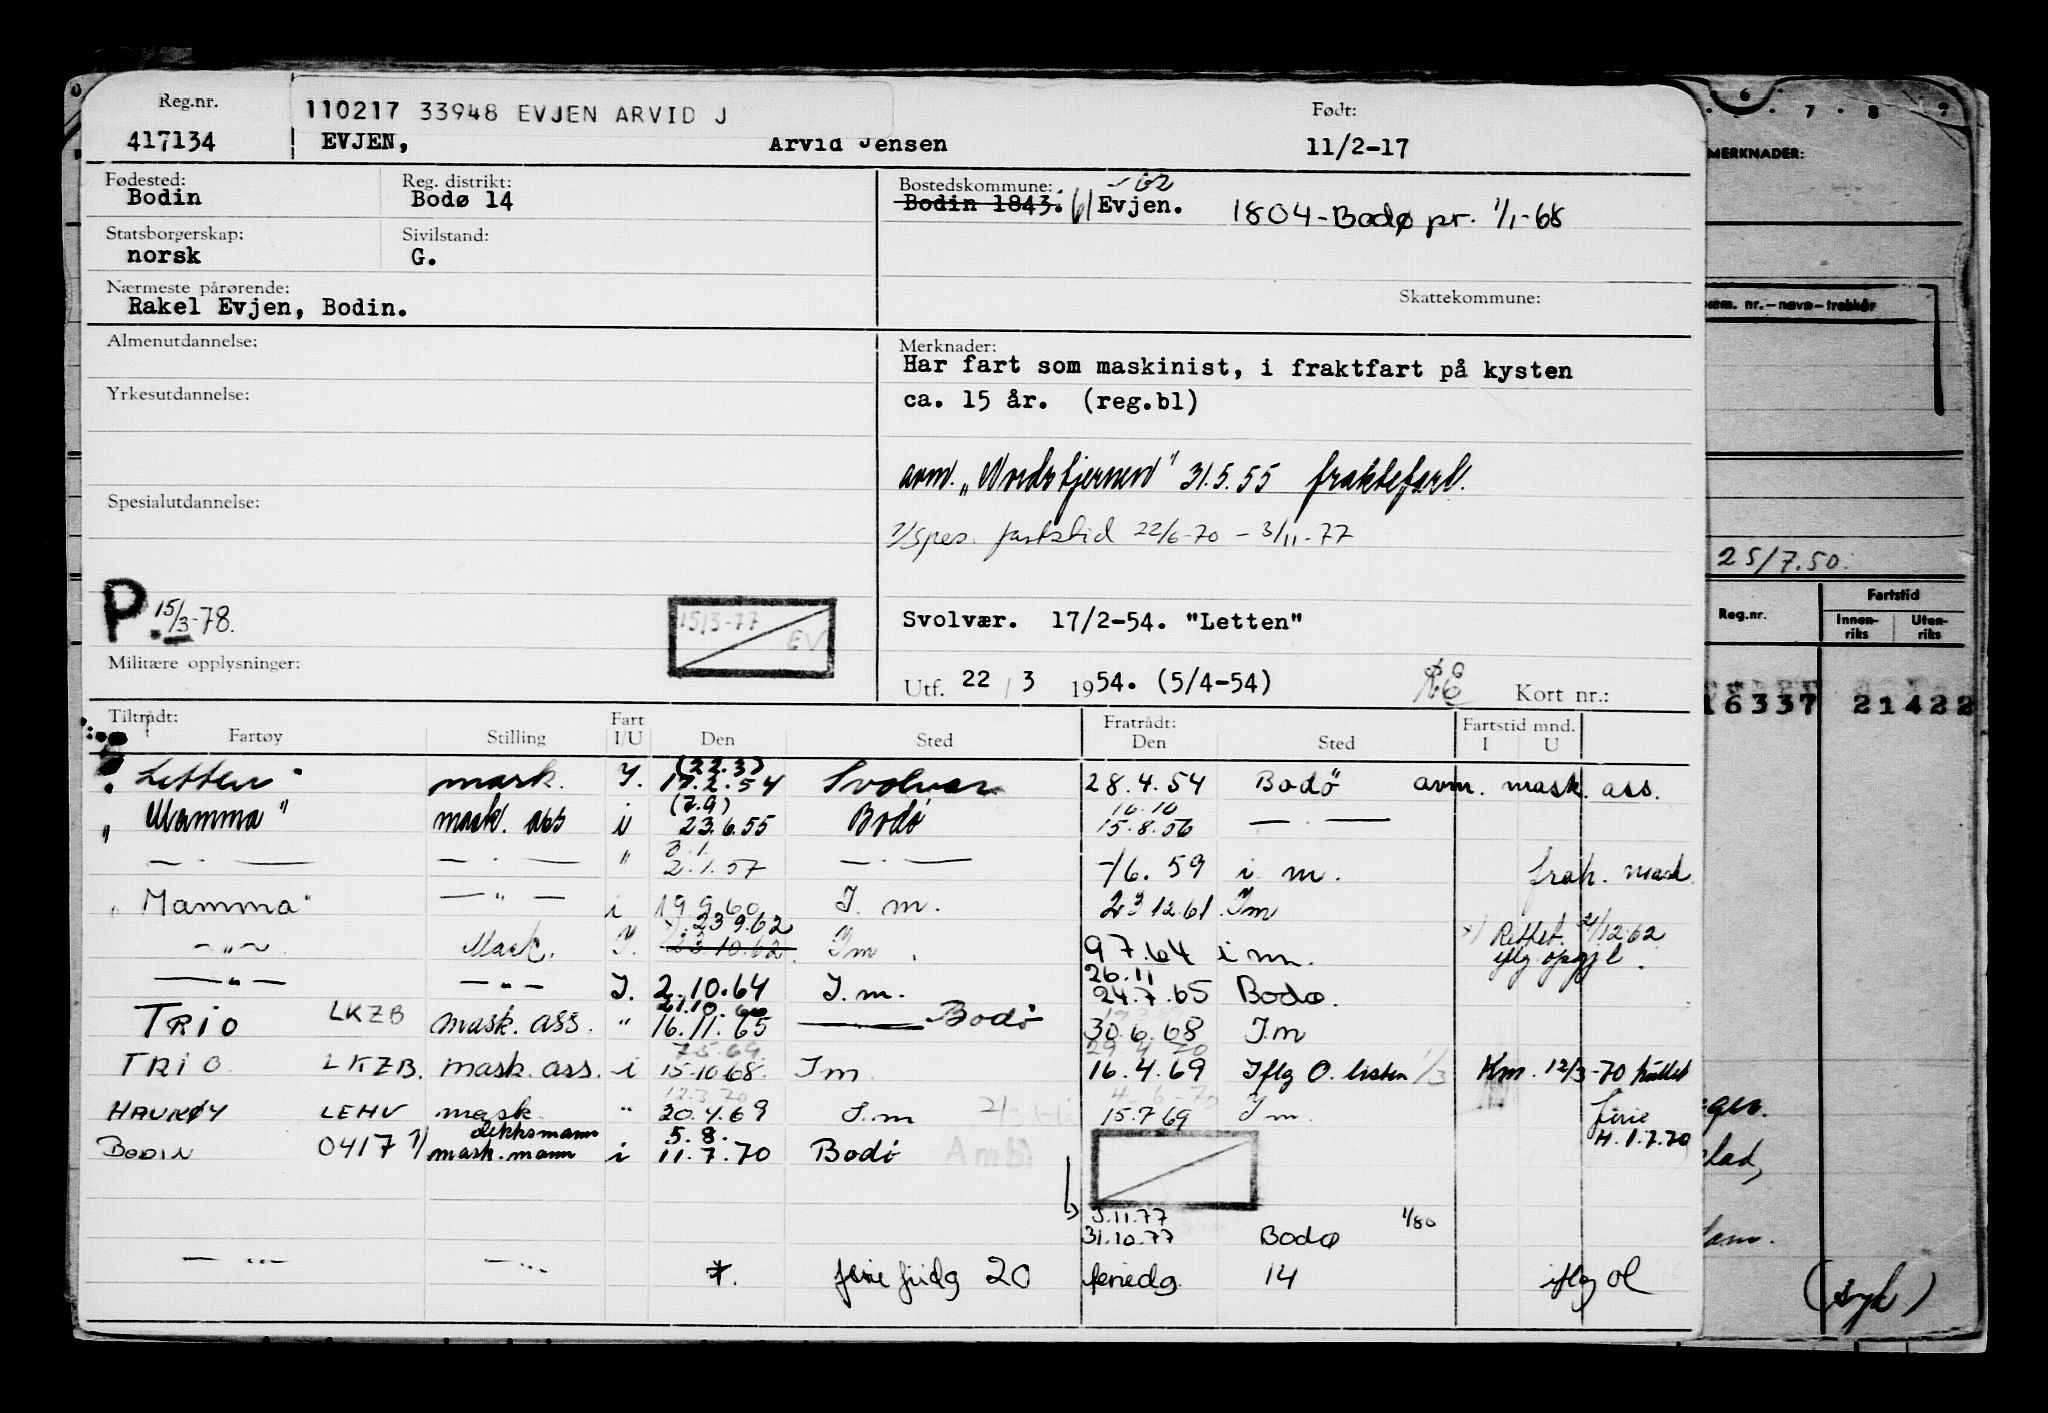 Reg.nr.
110217 33948 EVJEN ARVID J
Født:
417134 EVJEN, Arvid Jensen 11/2-17
Fødested: Reg. distrikt: Bostedskommune:
Bodin Bodø 14 Bodin 1843. 61 Evjen. 1804-Bodø pr. 1/1-68
Statsborgerskap: Sivilstand:
norsk G.
Nærmeste pårørende: Skattekommune:
Rakel Evjen, Bodin.
Almenutdannelse: Merknader:
Har fart som maskinist, i fraktfart på kysten
Yrkesutdannelse: ca. 15 år. (reg.bl)
avm. „Nordstjernen" 31.5.55 fraktefart.
Spesialutdannelse:
1/ spes. fartstid 22/6-70 - 3/11-77
P. 15/3-78. 15/3-77 EV
Svolvær. 17/2-54. "Letten"
Militære opplysninger:
Utf. 22 / 3 1954. (5/4-54) Kort nr.:
Tiltrådt: Fart Fratrådt: Fartstid mnd.
Fartøy Stilling I/U Den Sted Den Sted I U
(22.3)
"Letten" mask. I. 17.2.54 Svolvær 28.4.54 Bodø avm. mask. ass.
(7.9) 16.10
„Mamma" mask. ass i 23.6.55 Bodø 15.8.56 — . —
3.1.
— . — — . — " 2.1.57 — . — -/6.59 i m. frak. mask
„Mamma" — " — i 19.9.60 I. m. 23 12.61 Im
23 9.62
— " — Mask. I. 23.10.62 Im 9 7.64 i m. x) Rettet 21/12.62 iflg oppg
26.11
— " — — " — I. 2.10.64 I.m. 24.7.65 Bodø.
21.10.66
TRIO LKZB mask. ass. " 16.11.65 Bodø 30.6.68 I.m
7.5.69 29.4.70
TRIO LKZB. mask. ass. i 15.10.68 Im 16.4.69 Iflg O. listen 1/3 Km. 12/3-70
12.3.70 4-6-70
HAUKØY LEHV mask. " 20.4.69 I.m 15.7.69 I m. ferie
dekksmann 5.8. H. 1.7.70
BODIN 0417 1/ mask.mann i 11.7.70 Bodø
3.11.77
31.10.77 Bodø 1/80
— " — — " — *. ferie fridg 20 feriedg. 14 iflg ol
6 . 7 . 8 . 9
MERKNADER:
nr.—navn—trekkår
25/7.50.
Reg.nr. Fartstid
Innen-riks Uten-riks
16337 21422
(syk)